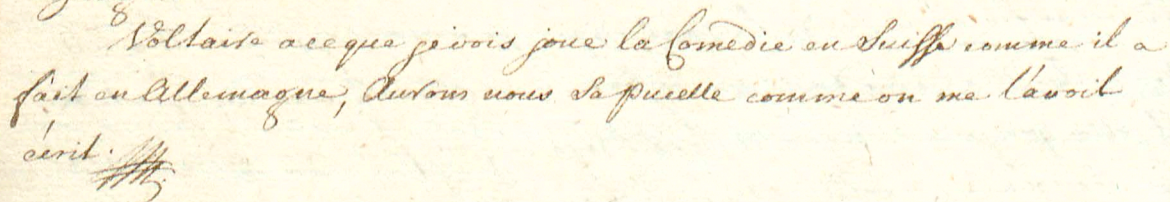 Voltaire aceque je vois joue la Comedie en Suisse comme il a
fait en Allemagne, Aurons nous sa pucelle comme on me l'avoit
écrit.